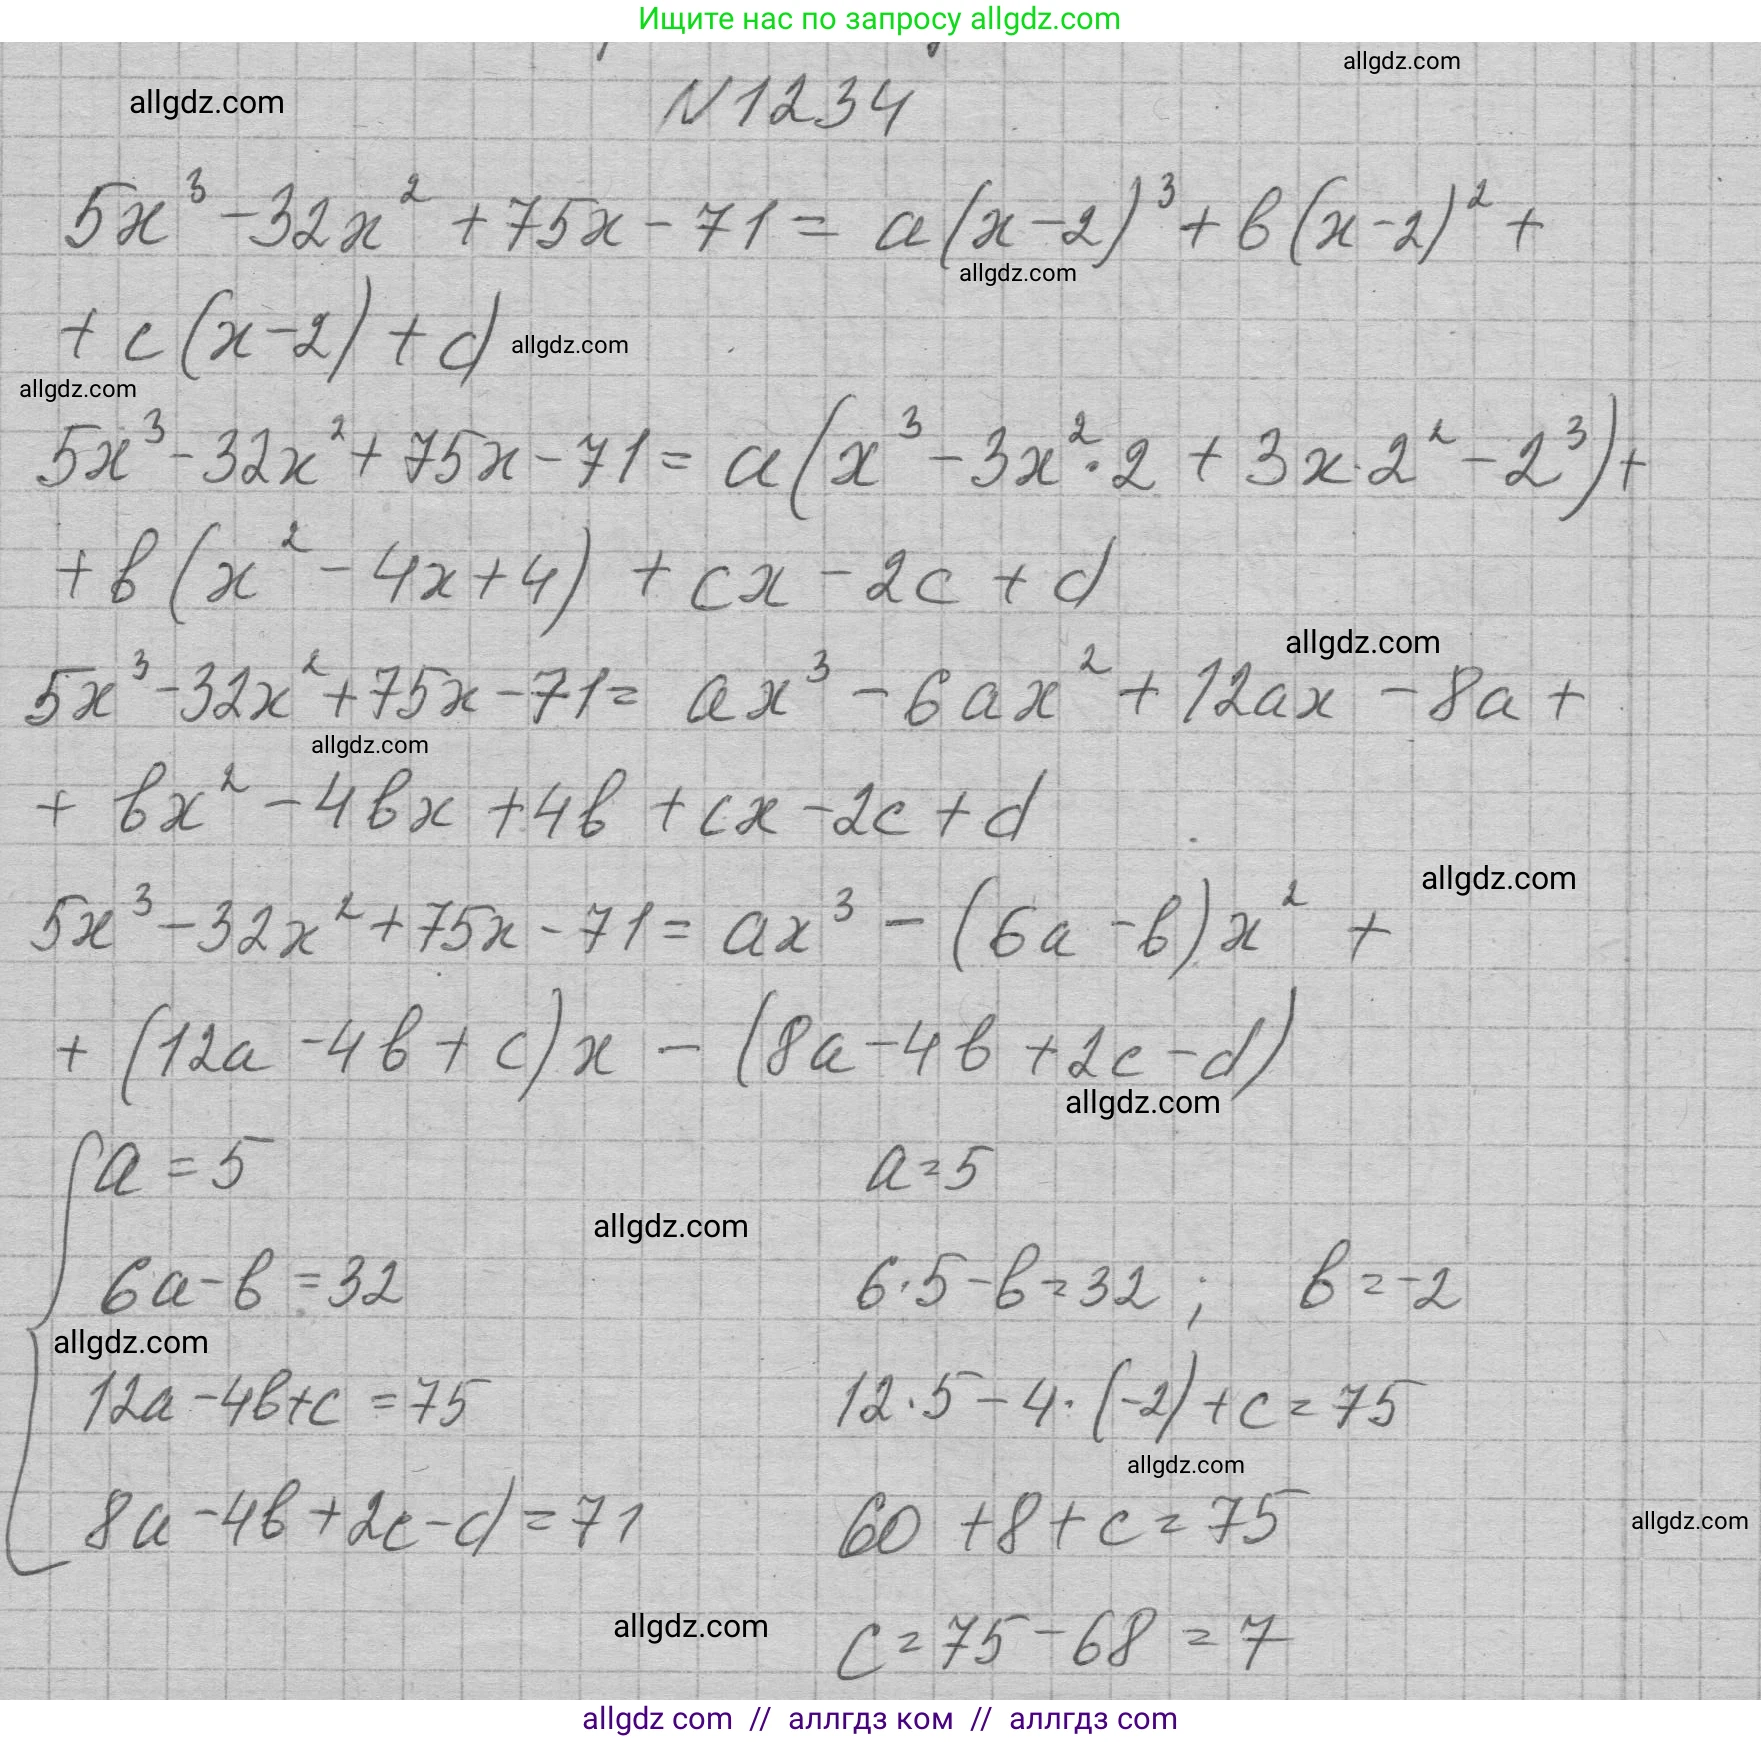 Ищите нас по запросу allgdz.com
allgdz.com
allgdz.com
N1234
5x³ - 32x² + 75x - 71 = a(x-2)³ + в(x-2)² +
allgdz.com
+ c(x-2) + d
allgdz.com
allgdz.com
5x³ - 32x² + 75x - 71 = a(x³ - 3x²·2 + 3x·2² - 2³) +
+ в(x² - 4x + 4) + cx - 2c + d
allgdz.com
5x³ - 32x² + 75x - 71 = ax³ - 6ax² + 12ax - 8a +
allgdz.com
+ вx² - 4вx + 4в + cx - 2c + d
allgdz.com
5x³ - 32x² + 75x - 71 = ax³ - (6a - в)x² +
+ (12a - 4в + c)x - (8a - 4в + 2c - d)
allgdz.com
a = 5 a = 5
allgdz.com
6a - в = 32 6·5 - в = 32 ; в = -2
allgdz.com
12a - 4в + c = 75 12·5 - 4·(-2) + c = 75
allgdz.com
8a - 4в + 2c - d = 71 60 + 8 + c = 75
allgdz.com
allgdz.com
c = 75 - 68 = 7
allgdz com // аллгдз ком // аллгдз com